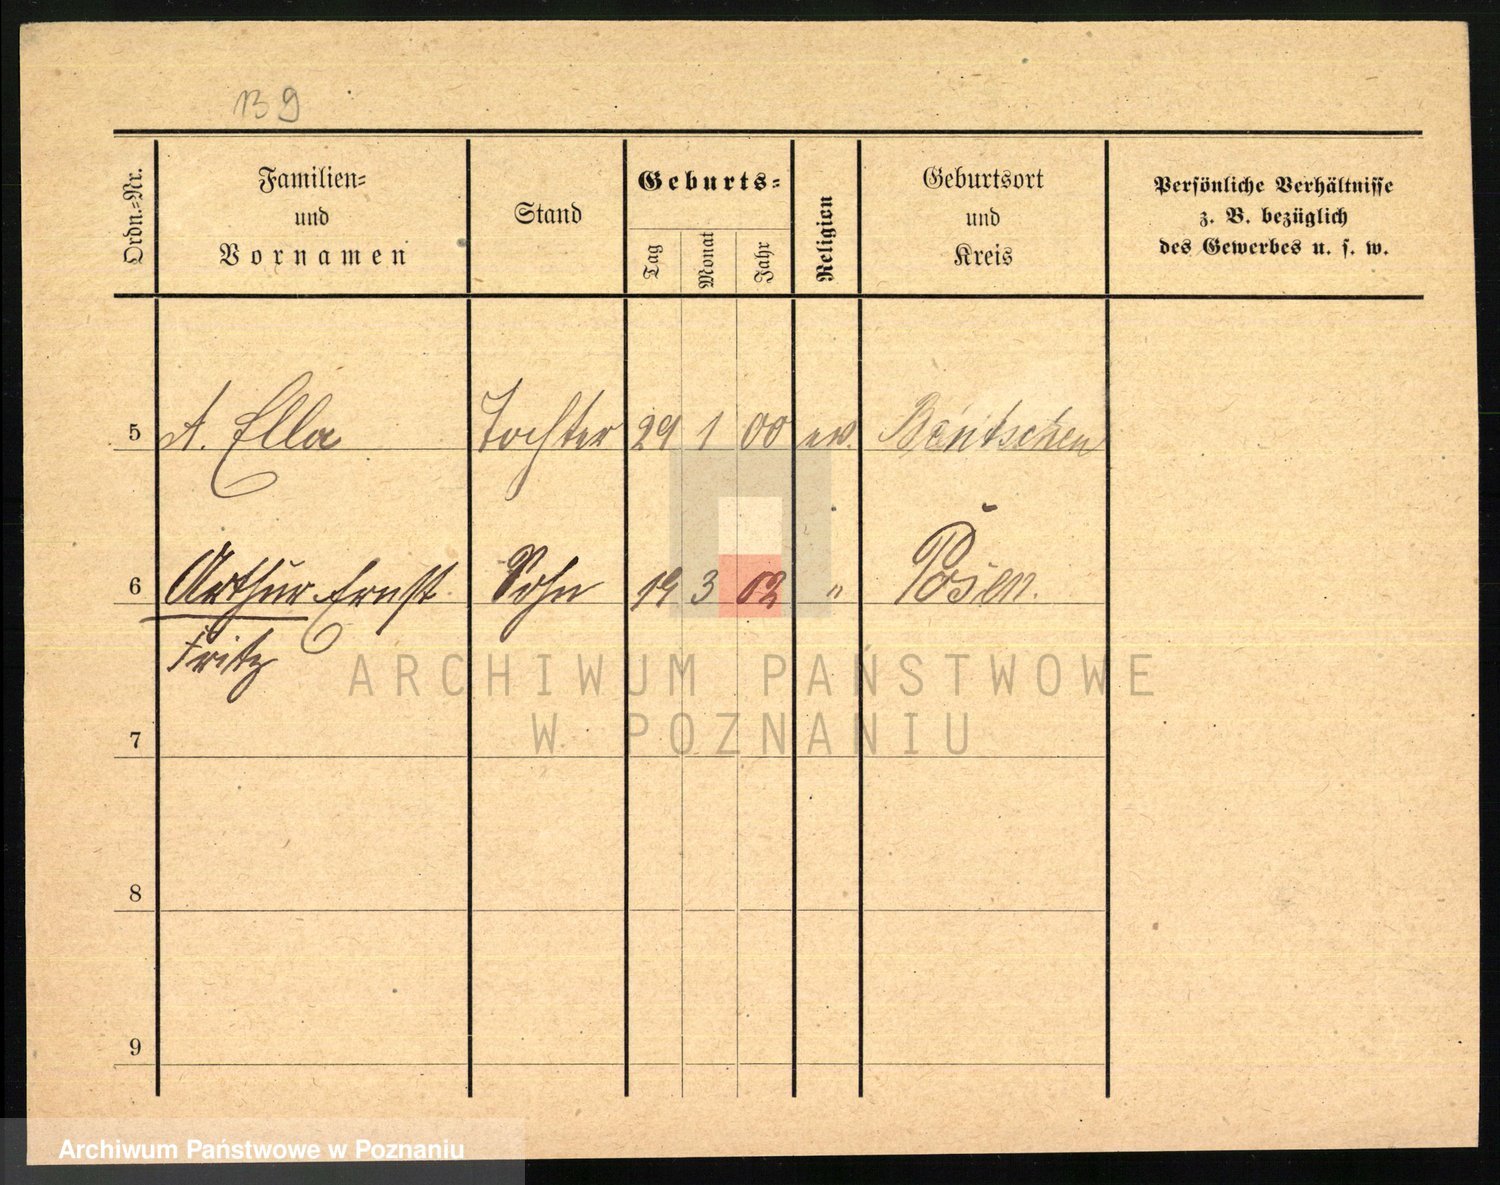 139
Ordn.=Nr.
Familien=
und
Vornamen
Stand
Geburts=
Tag
Monat
Jahr
Religion
Geburtsort
und
Kreis
Persönliche Verhältnisse
z. B. bezüglich
des Gewerbes u. s. w.
5 A. Ella Tochter 29 1 00 ev. Bentschen
6 Arthur Ernst Sohn 19 3 02 " Posen.
Fritz
7
8
9
ARCHIWUM PAŃSTWOWE
W POZNANIU
Archiwum Państwowe w Poznaniu